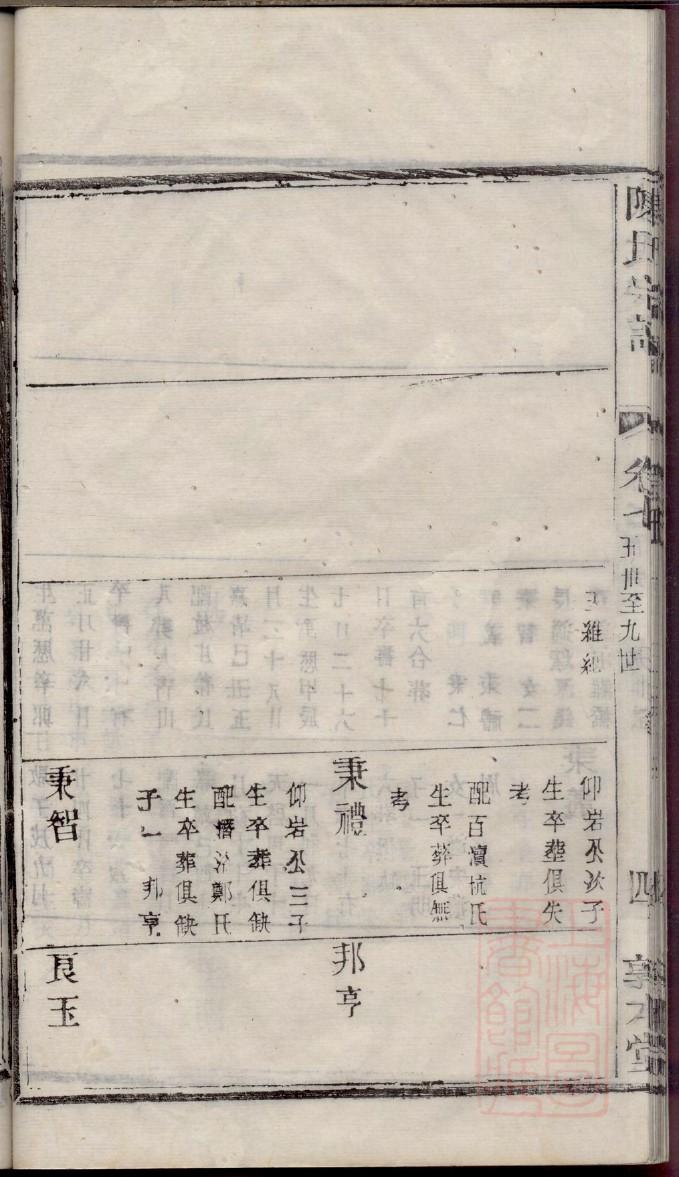 陳氏宗譜
卷七
五世至九世
四
敦本堂
王維紳
仰岩公次子
生卒塟俱失
考
配百瀆杭氏
生卒葬俱無
考
秉禮
邦亨
仰岩公三子
生卒葬俱缺
配潛莊鄭氏
生卒葬俱缺
子一 邦亨
秉智
良玉